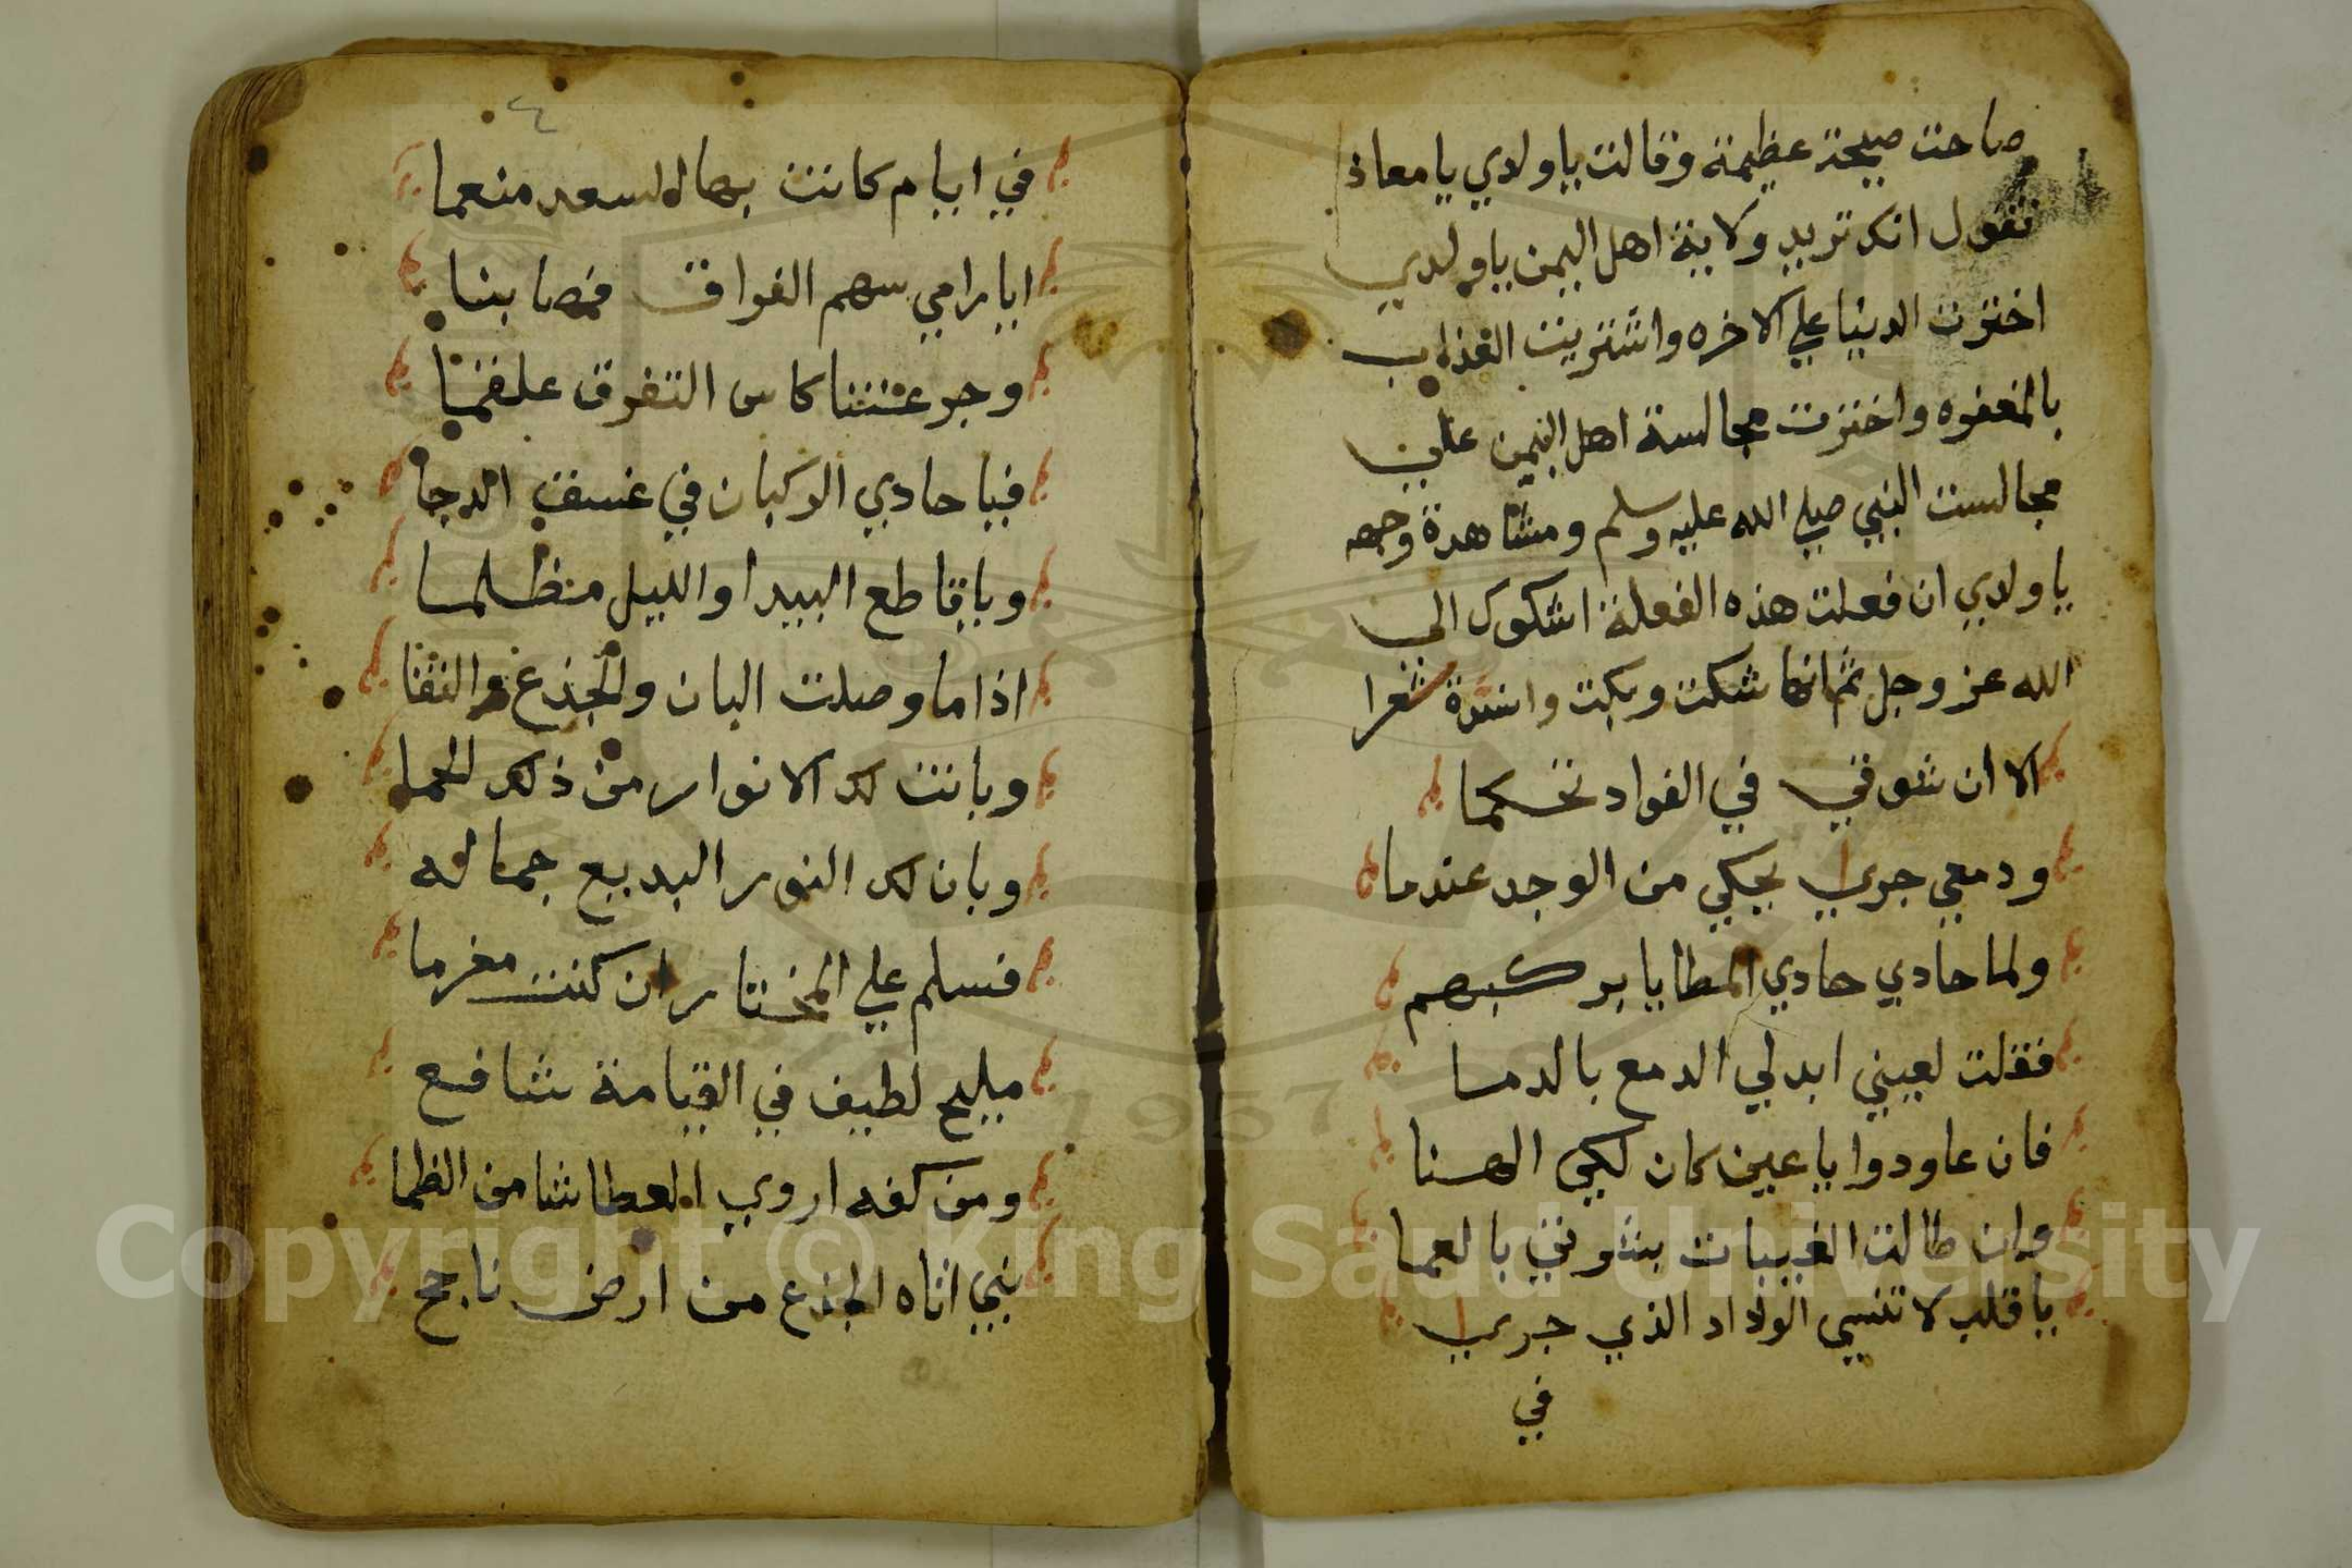 صاحت صيحة عظيمة وقالت ياولدي يا معاذ
تقول انك تريد ولاية اهل اليمن ياولدي
اخترت الدنيا علي الاخره واشتريت العذاب
بالمغفره واخترت مجالسة اهل اليمن علي
مجالست النبي صلي الله عليه وسلم ومشاهدة وجهه
ياولدي ان فعلت هذه الفعلة اشكوك الي
الله عز وجل ثم انها شكت وبكت وانشدة شعرا
الا ان شوقي في الفواد تحكما
ودمعي جري يحكي من الوجد عندما
ولما حادي حادي المطايا بركبهم
فقلت لعيني ابدلي الدمع بالدما
فان عاودوا ياعين كان لكي الهنا
وان طالت الغيبات بشوقي بالعما
ياقلب لا تنسي الوداد الذي جري
في
٤
في ايام كانت بها السعد منعما
ايا رامي سهم الفراق فصابنا
وجرعتنا كاس التفرق علقما
فيا حادي الركبان في غسق الدجا
وياقاطع البيدا والليل مظلما
اذا ما وصلت البان والجذع والنقا
وبانت لك الانوار من ذلك الحما
وبان لك النور البديع جماله
فسلم علي المختار ان كنت مغرما
مليح لطيف في القيامة شافع
ومن كفه اروي العطاشا من الظما
نبي اتاه الجذع من ارض ناجح
Copyright © King Saud University
1957